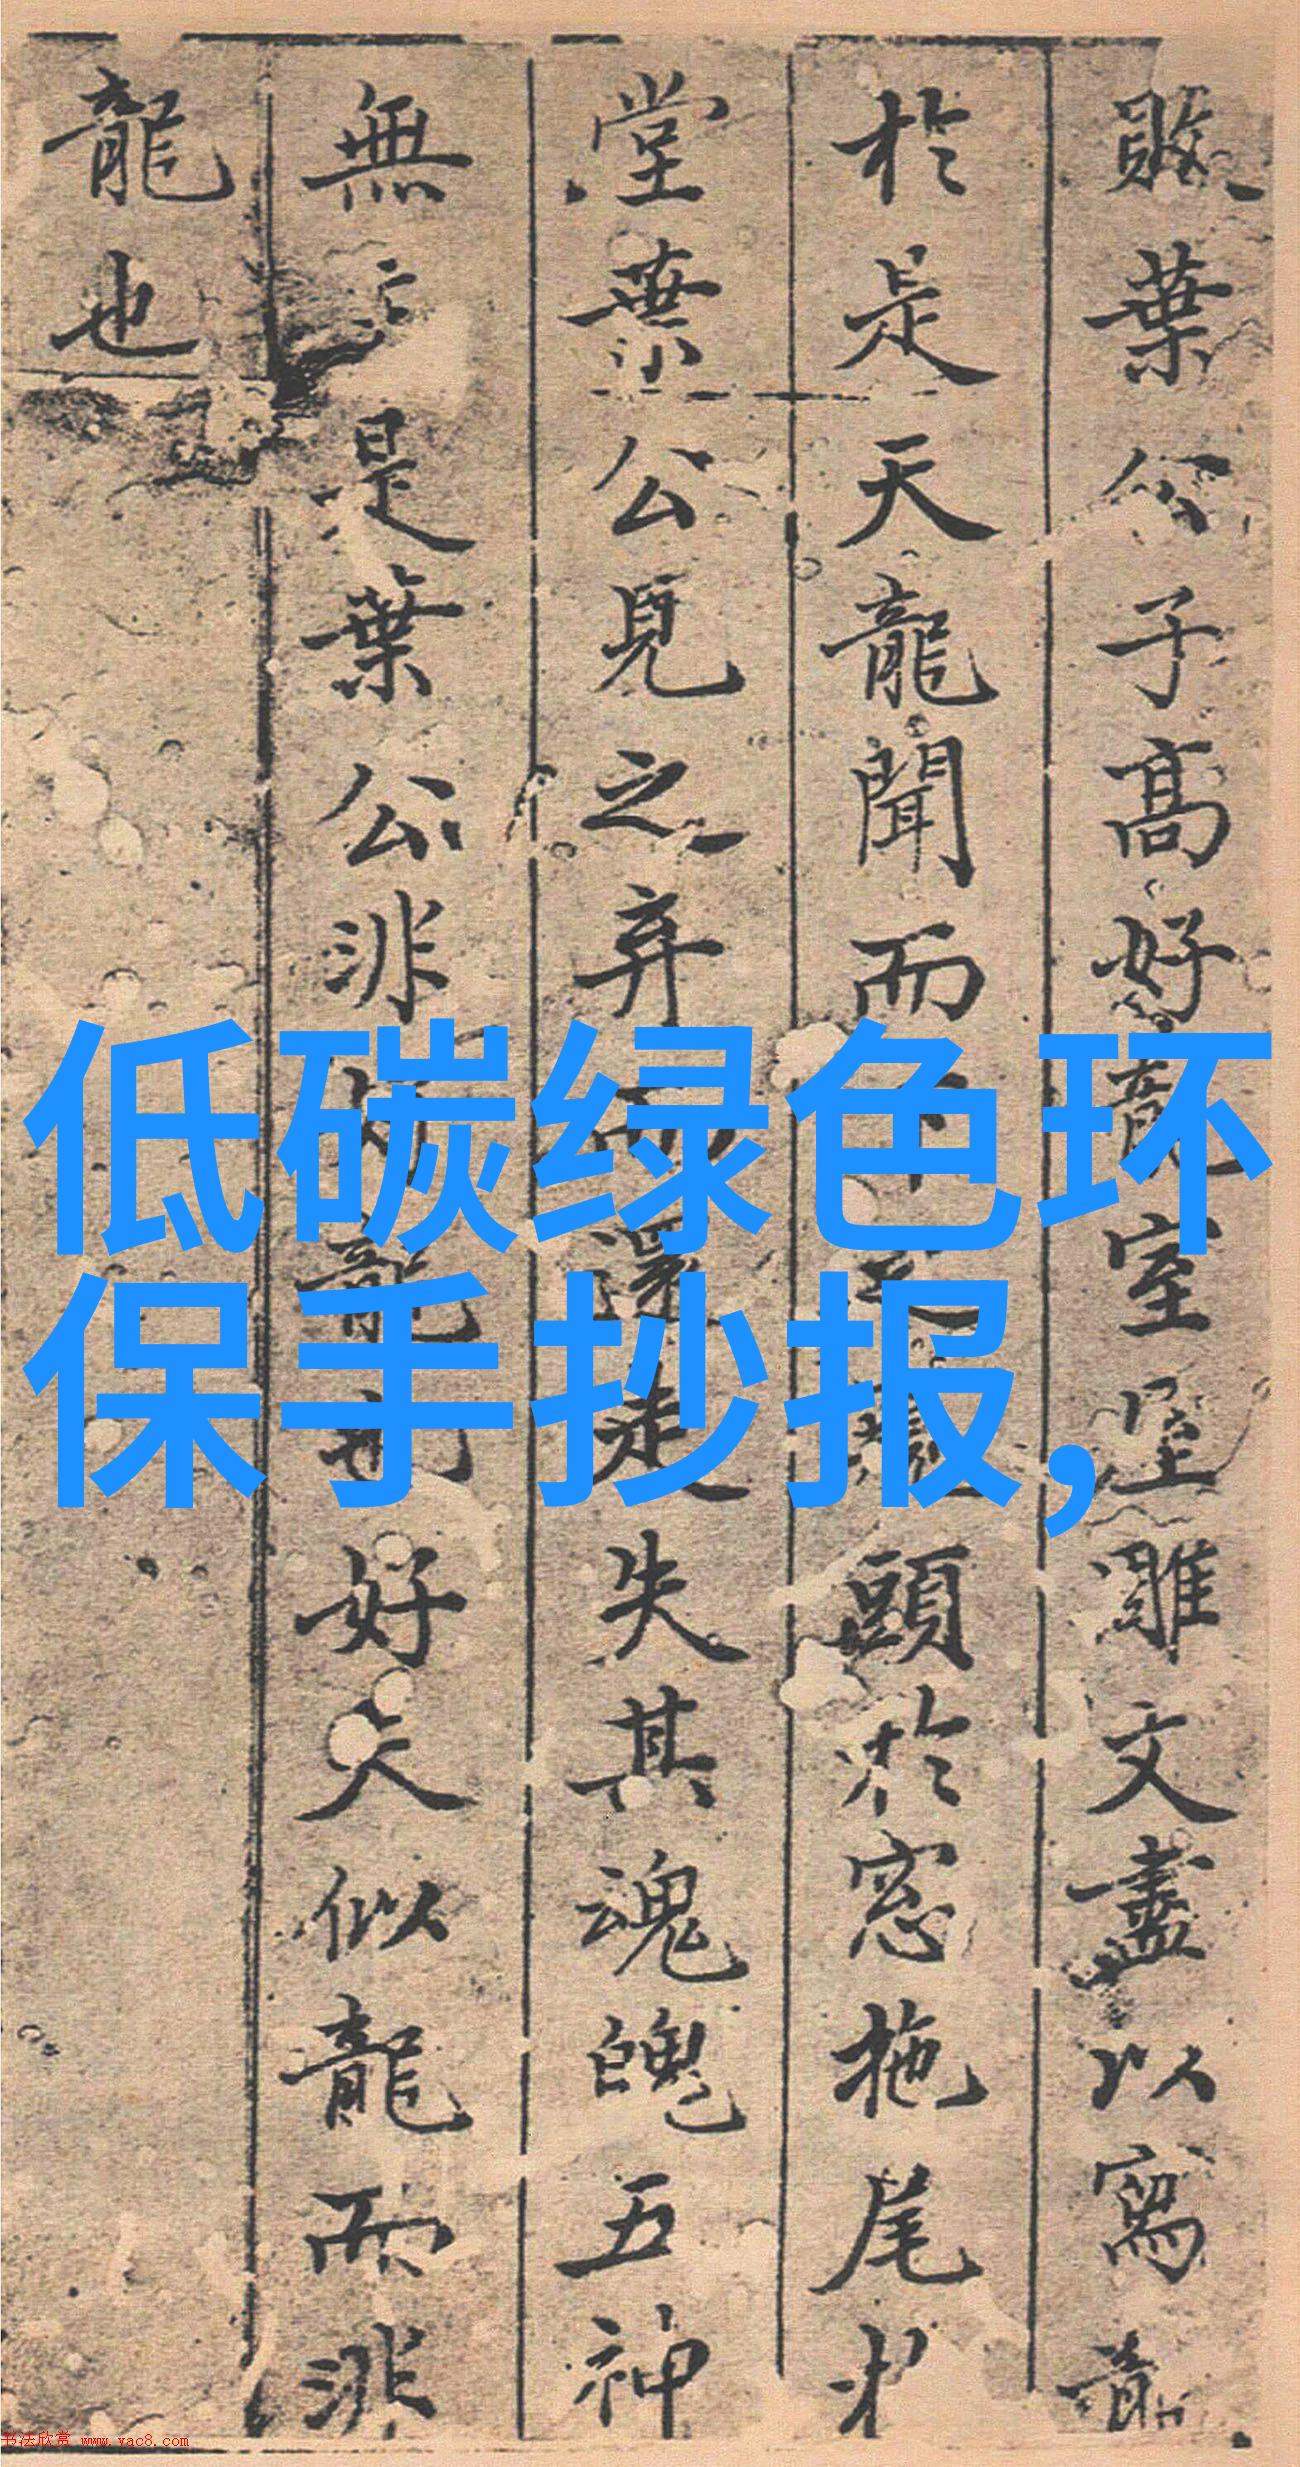 殿葉公子高好龍室屋雕文盡以寫龍
於是天龍聞而下之窺頭於窓拖尾於
堂葉公見之弃而還走失其魂魄五神
無主是葉公非好龍也好夫似龍而非
龍也
低碳绿色环
保手抄报,
书法欣赏 www.yac8.com